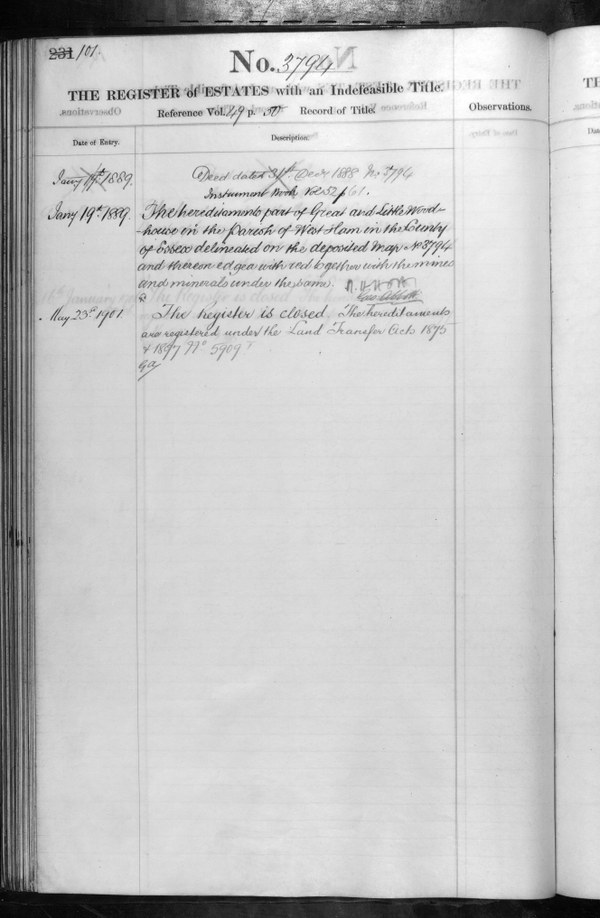 231 101
No. 3794
THE REGISTER of ESTATES with an Indefeasible Title.
Reference Vol. 49 p. 50 Record of Title.
Observations.
Date of Entry.
Description.
Jany 19th 1889.
Deed dated 31st Decr 1888 No 3794
Instrument Book Vol 52 p 61.
Jany 19th 1889.
The hereditaments part of Great and Little Wood-
-house in the Parish of West Ham in the County
of Essex delineated on the deposited Map No 3794
and thereon edged with red together with the mines
and minerals under the same.
May 23rd 1901
The Register is closed. The hereditaments
are registered under the Land Transfer Acts 1875
& 1897 No 5909